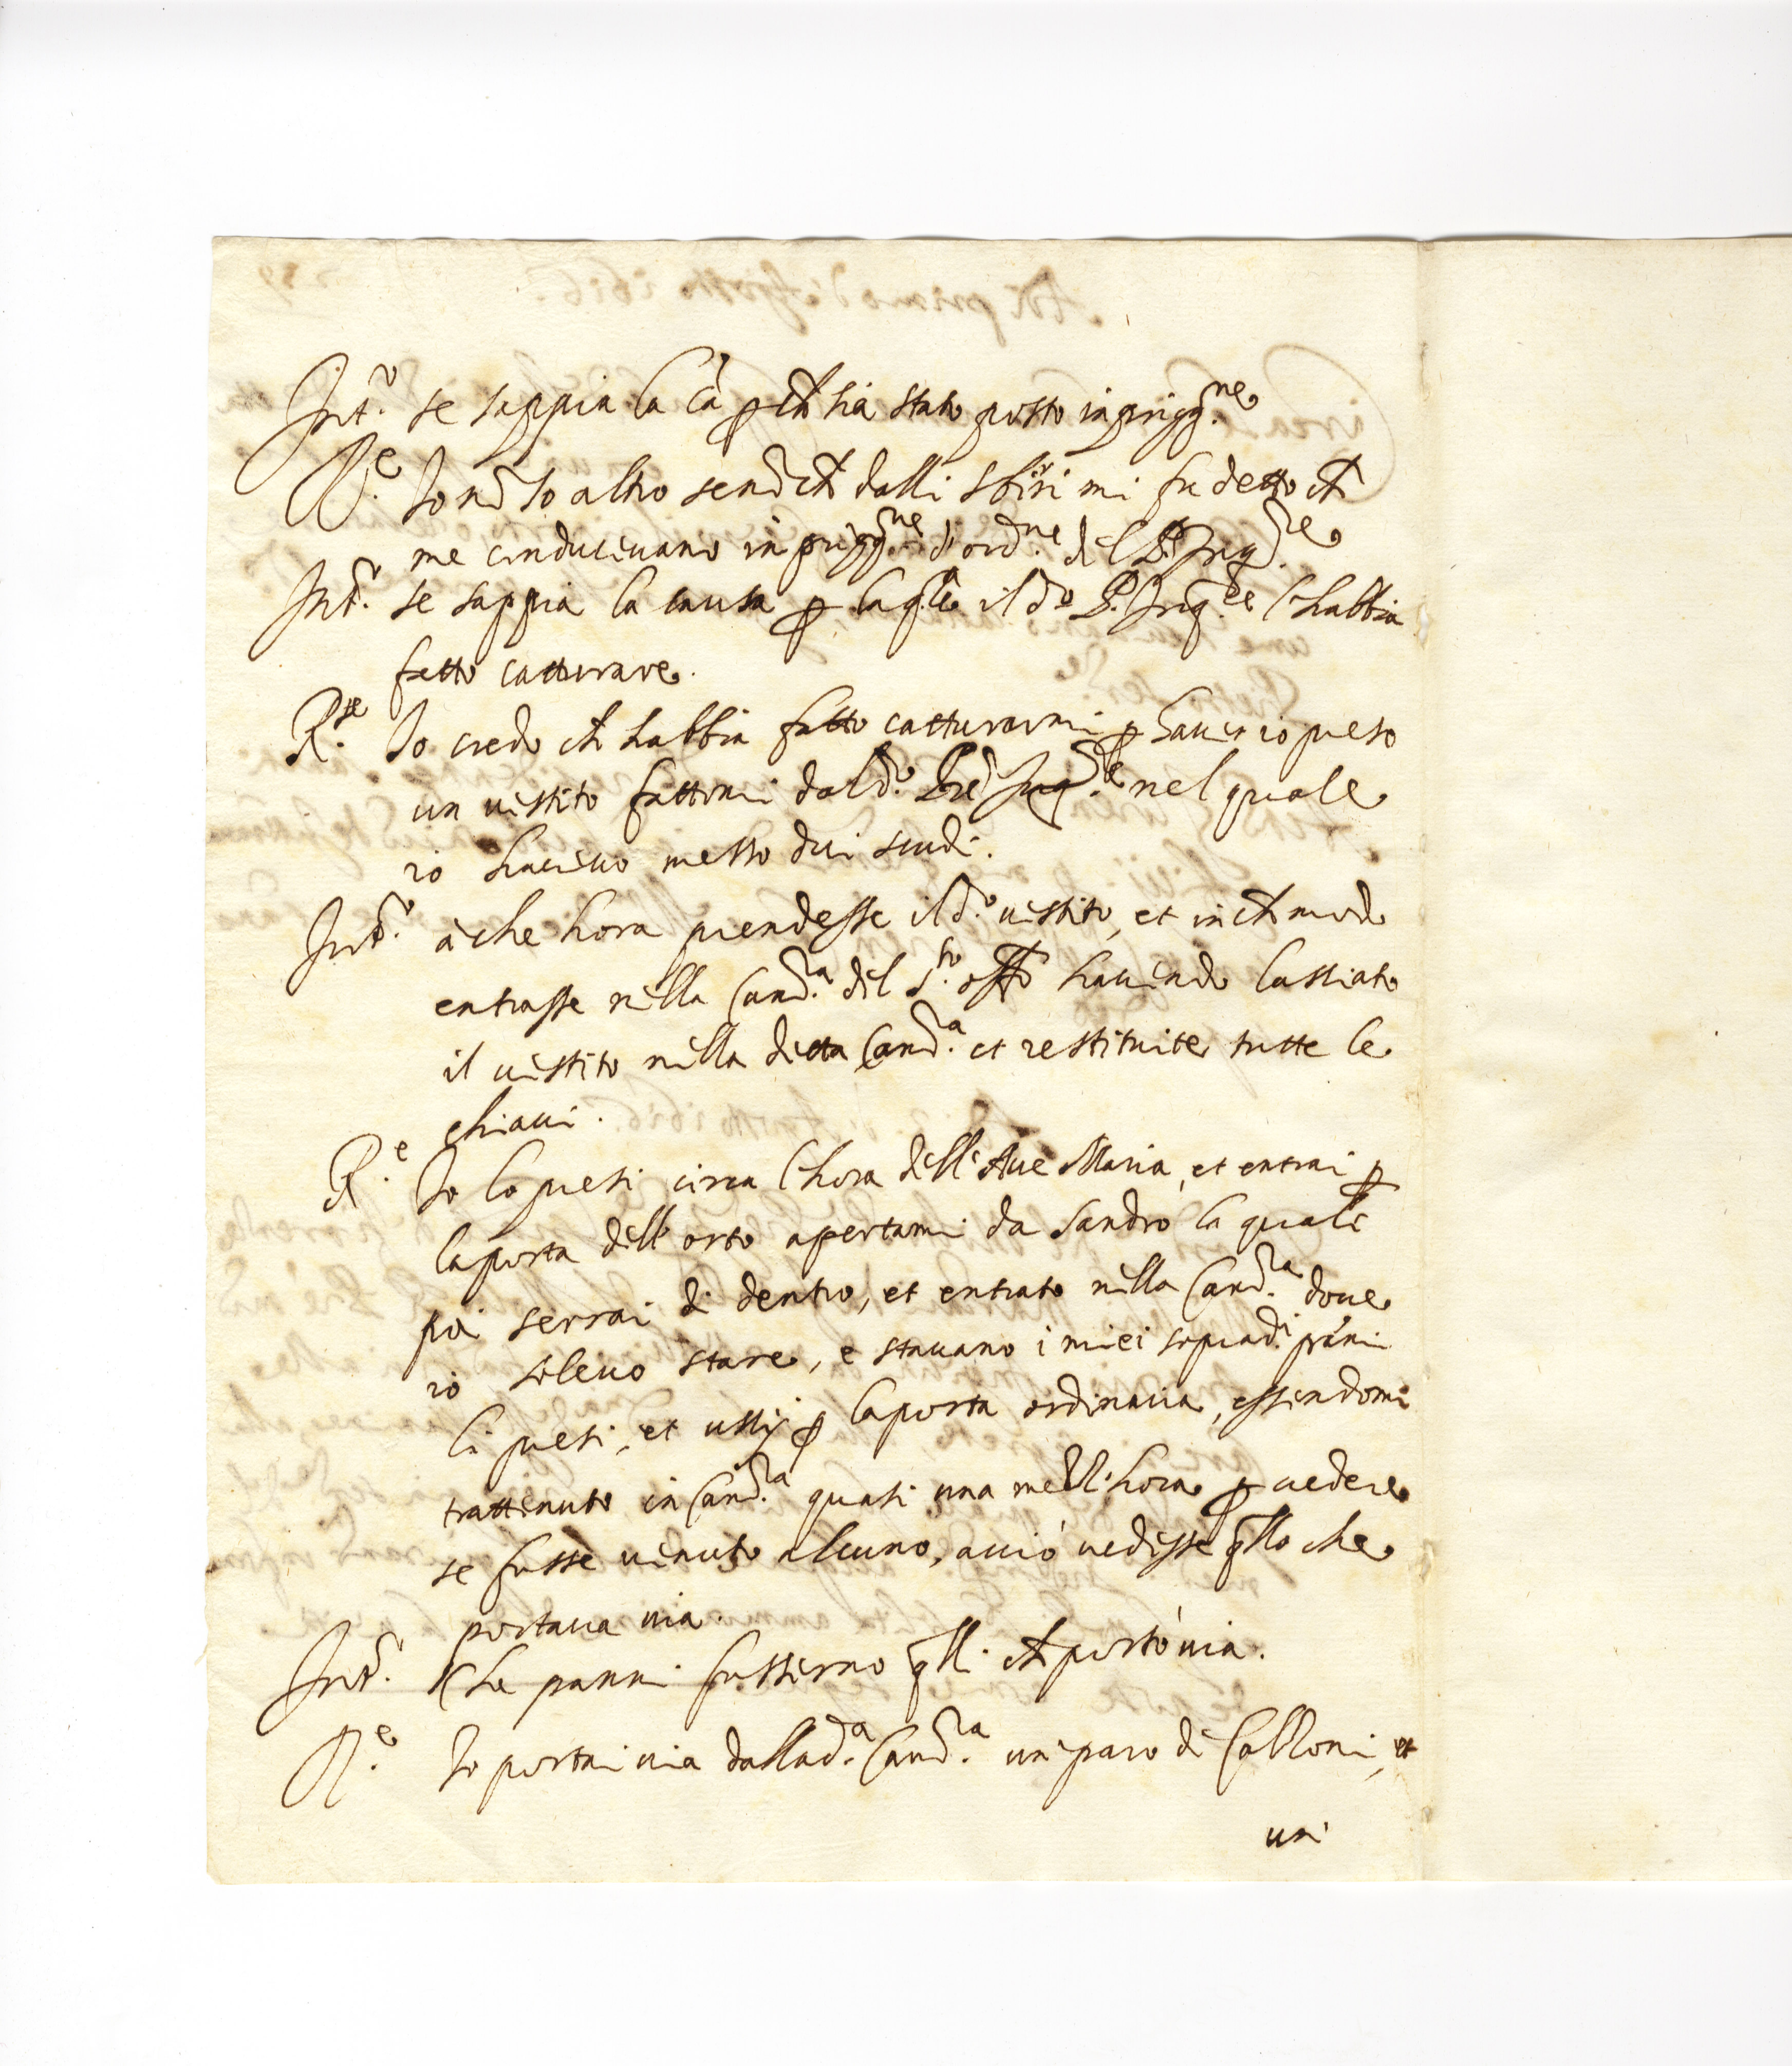 Int.o se sappia la cã p ch sia stato posto in prigg.ne
R.e Io nõ so altro senõ ch dalli sbirri mi fu detto ch
me conducevano in prigg.ne d'ord.ne del P. Inq.re
Int.o se sappia la causa p la q.le il d.o P. Inq.re l'habbia
fatto catturare.
R.se Io credo ch habbia fatto catturarmi p haver io preso
un vestito fattomi dal d.o Prẽ Inq.re nel quale
io havevo messo dui scudi.
Int.o à che hora prendesse il d.o vestito, et in ch modo
entrasse nella Canc.a del S.to Offo havendo lassiato
il vestito nella detta Canc.a et restituite tutte le
chiavi.
R.e Io lo presi circa l'hora dell'Ave Maria, et entrai p
la porta dell'orto apertami da Sandro la quale
poi serrai di dentro, et entrato nella Canc.a dove
io solevo stare, e stavano i miei soprad.i panni
li presi, et uscij p la porta ordinaria, essendomi
trattenuto in Canc.a quasi una mezz'hora p vedere
se fusse venuto alcuno, acciò vedesse qllo che
portava via.
Int.o Che panni fusserno qlli ch portò via.
R.e Io portai via dalla d.a Canc.a un paro di Calzoni, et
un